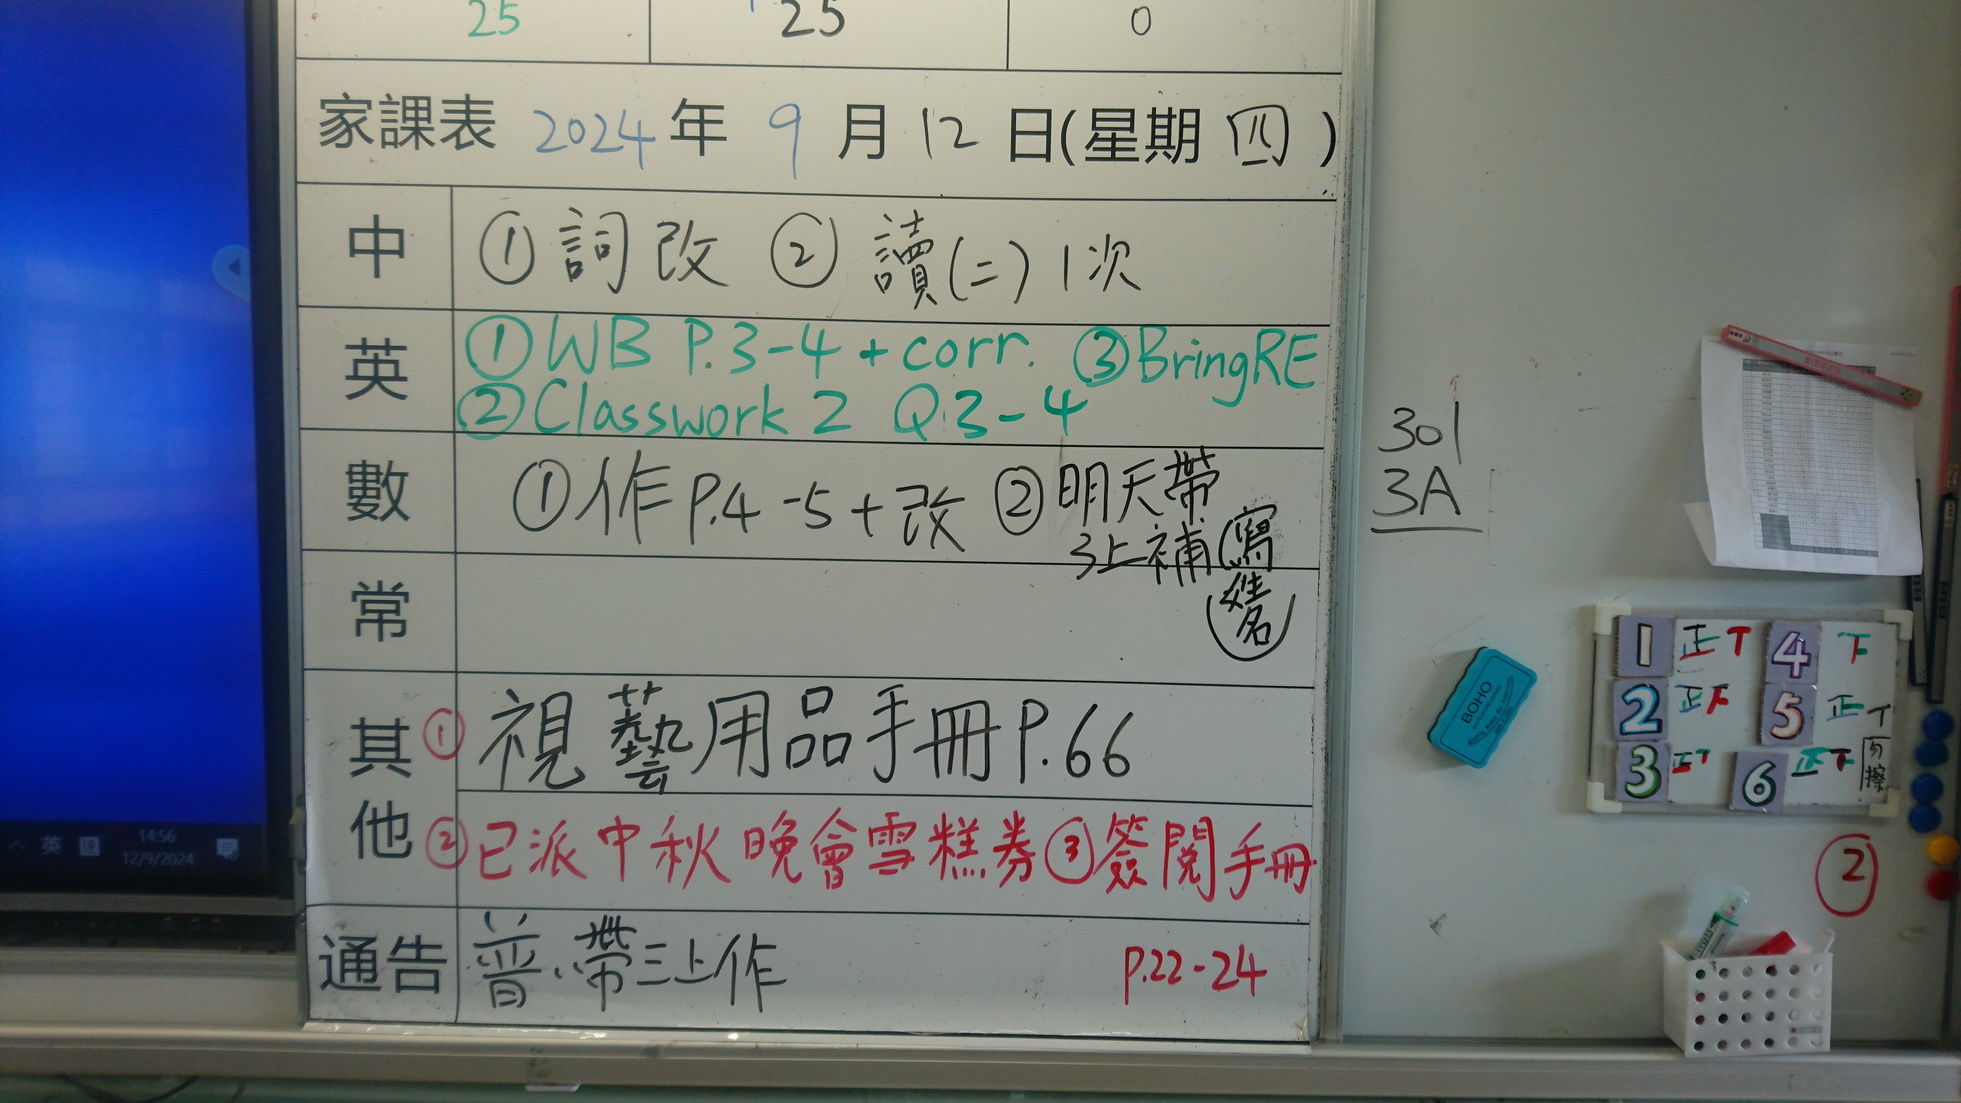 25 25 0
家課表 2024 年 9 月 12 日(星期 四 )
中 ① 詞改 ② 讀(二) 1次
英 ① WB P.3-4 + corr. ③ Bring RE
② Classwork 2 Q.3-4
數 ① 作 P.4-5 + 改 ② 明天帶
3上補(寫
姓名)
常
其他 ① 視藝用品手冊 P.66
② 已派中秋晚會雪糕券 ③ 簽閱手冊
通告 普.帶三上作 P.22-24
英
14:56
12/9/2024
301
3A
BOHO
1 正 T 4 下
2 正 下 5 正 丅
3 正 6 正 下
勿擦
2